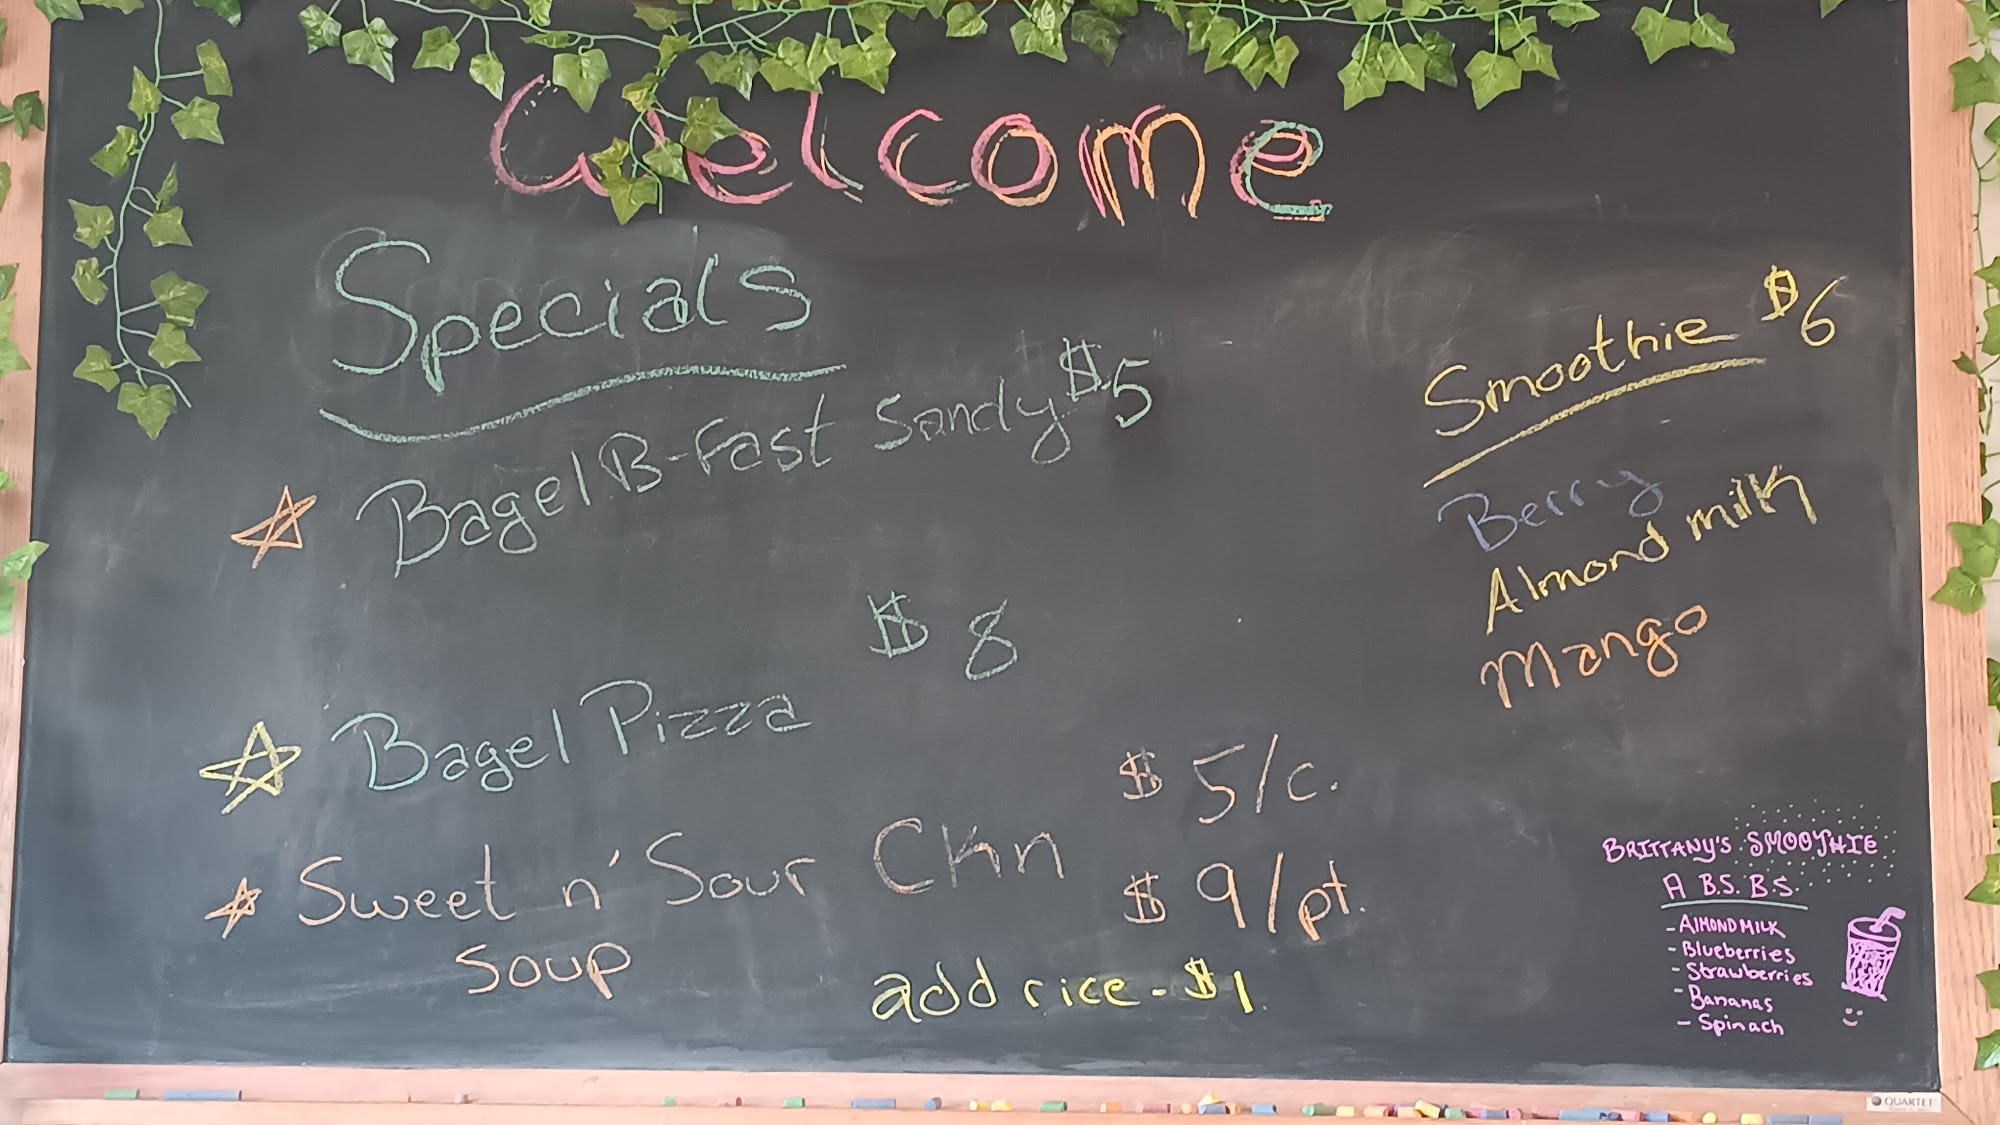 Welcome
Specials
Bagel B-Fast Sandy $5
$8
Bagel Pizza
Sweet n' Sour Ckn
Soup
$5/c.
$9/pt.
add rice - $1
Smoothie $6
Berry
Almond milk
Mango
BRITTANY'S SMOOTHIE
A B.S. B.S.
- ALMOND MILK
- Blueberries
- Strawberries
- Bananas
- Spinach
QUARTET